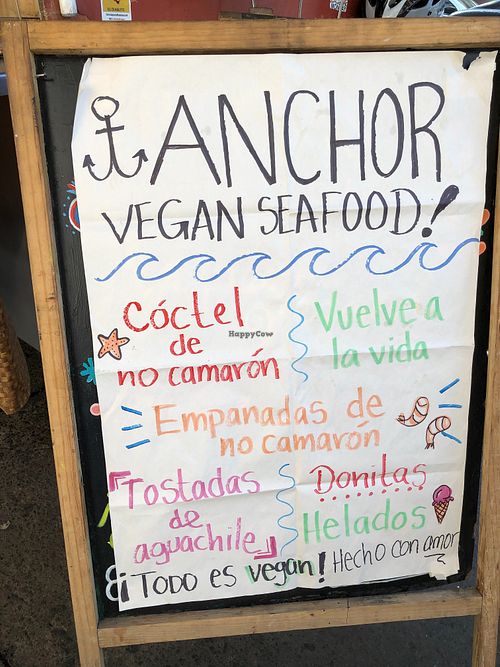 ANCHOR
VEGAN SEAFOOD!
Cóctel
de
no camarón
Vuelve a
la vida
HappyCow
Empanadas de
no camarón
Tostadas
de
aguachile
Donitas
Helados
¡TODO ES vegan! Hecho con amor